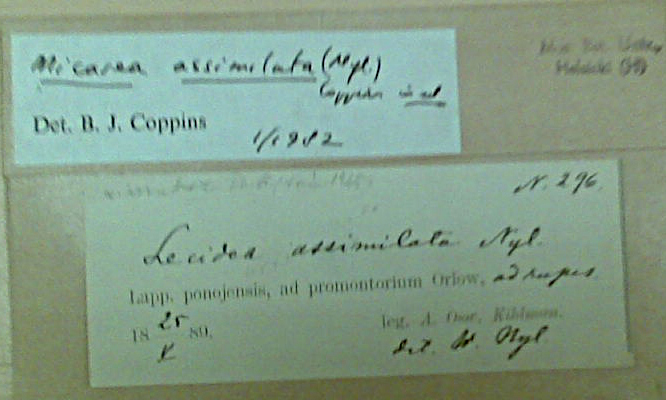 Micarea assimilata (Nyl.)
Coppins in ed
Det. B. J. Coppins
1/1982
Helsinki (H)
N. 296.
Lecidea assimilata Nyl.
Lapp. ponojensis, ad promontorium Orlow, ad rupes.
18 25/V 89.
leg. A. Osw. Kihlman.
det. W. Nyl.